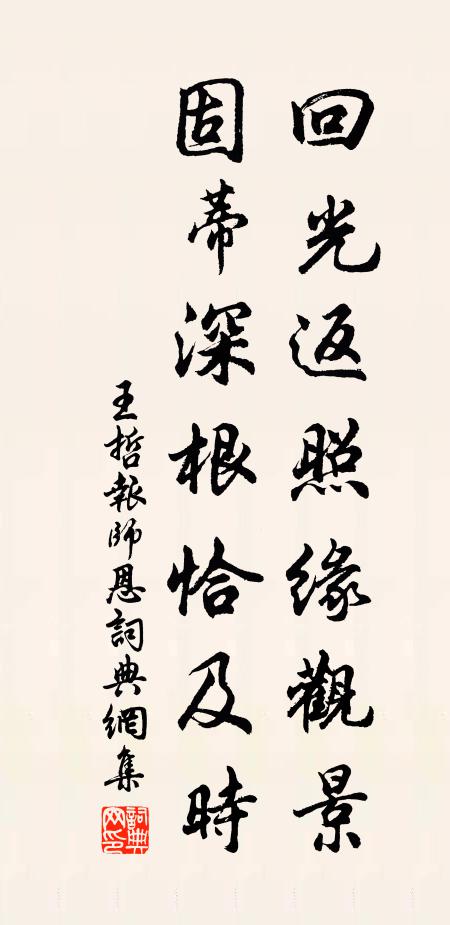 回光返照緣觀景
固蒂深根恰及時
王哲報師恩詞典網集
詞典網印